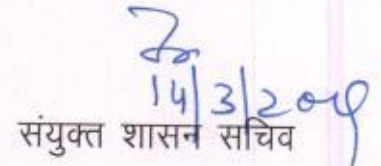 14/3/2009
संयुक्त शासन सचिव